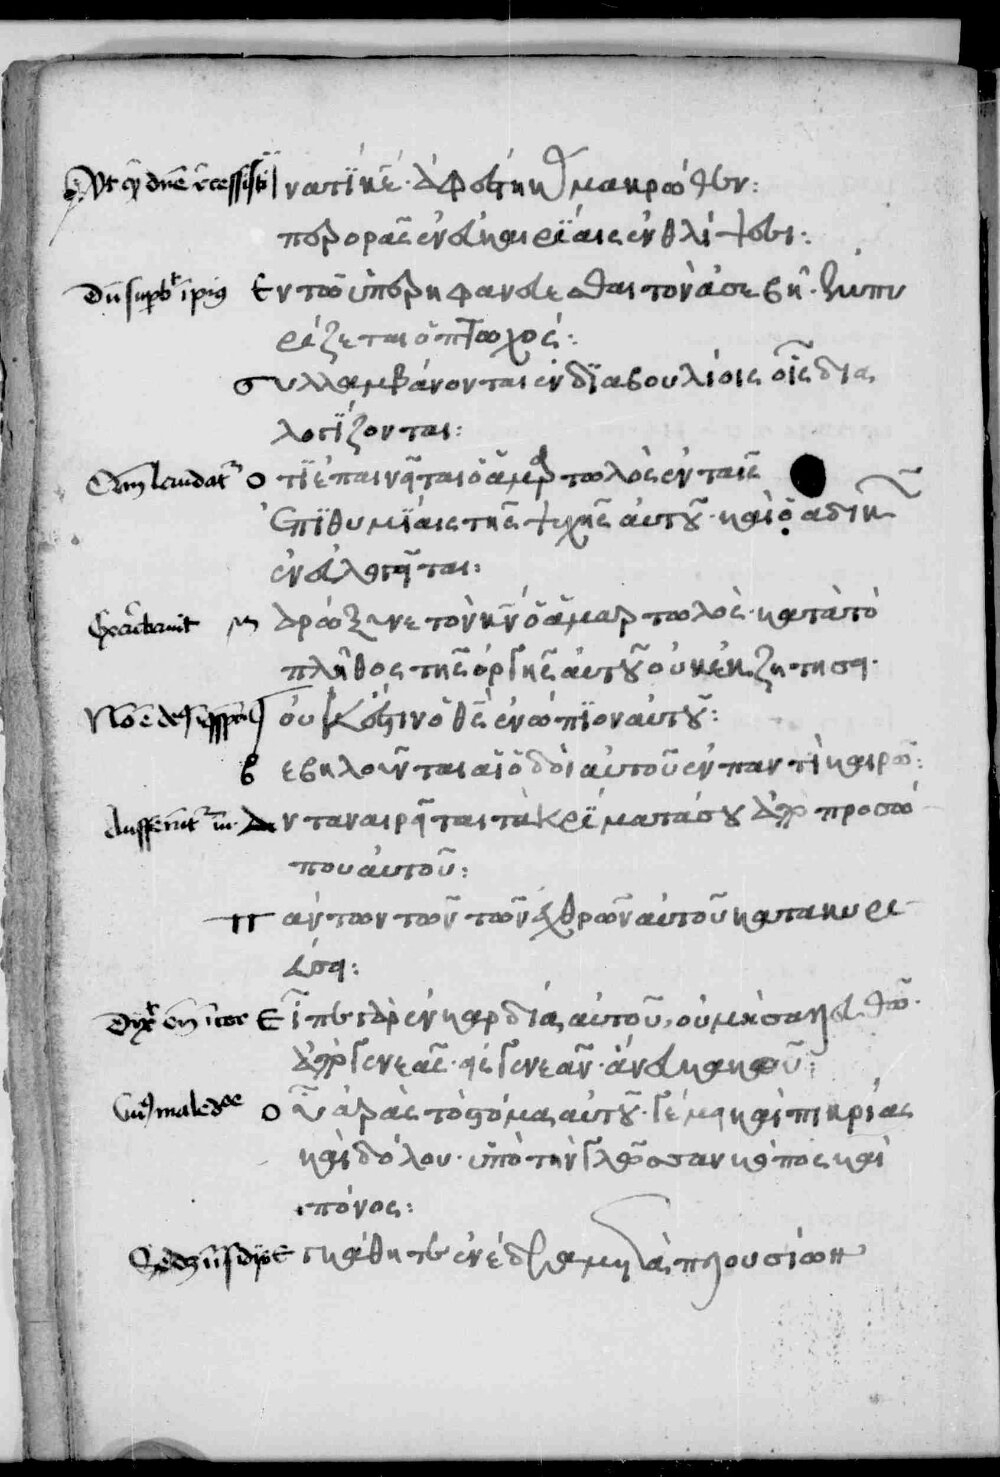 Ut qd dne recessisti ἱνατί κε ἀφέστηκας μακρόθεν:
ὑπερορᾶς ἐν εὐκαιρίαις ἐν θλίψει:
Dū supbt ipius Ἐν τῶ ὑπερηφανεύεσθαι τὸν ἀσεβῆ· ἐμπυ
ρίζεται ὁ πτωχός:
συλλαμβάνονται ἐν διαβουλίοις οἷς δια
λογίζονται:
Qm laudatr Ὅτι ἐπαινεῖται ὁ ἁμαρτωλὸς ἐν ταῖς
ἐπιθυμίαις τῆς ψυχῆς αὐτοῦ· καὶ ὁ ἀδικῶν
ἐνευλογεῖται:
Exacerbavit παρώξυνε τὸν κν ὁ ἁμαρτωλὸς· κατὰ τὸ
πλῆθος τῆς ὀργῆς αὐτοῦ οὐκ ἐκζητήσει·
Nō ē deus οὐκ ἔστιν ὁ θς ἐνώπιον αὐτοῦ:
βεβηλοῦνται αἱ ὁδοὶ αὐτοῦ ἐν παντὶ καιρῶ:
Aufferūtr ἀνταναιρεῖται τὰ κρίματά σου ἀπὸ προσώ
που αὐτοῦ:
πάντων τῶν ἐχθρῶν αὐτοῦ κατακυρι
εύσει:
Dixt em Εἶπεν γὰρ ἐν καρδία αὐτοῦ, οὐ μὴ σαλευθῶ·
ἀπὸ γενεᾶς εἰς γενεὰν ἄνευ κακοῦ:
Cuius maledōe οὗ ἀρᾶς τὸ στόμα αὐτοῦ γέμει καὶ πικρίας
καὶ δόλου· ὑπὸ τὴν γλῶσσαν κόπος καὶ
πόνος:
Sedet in sidiis ἐγκάθηται ἐνέδρα μετὰ πλουσίων